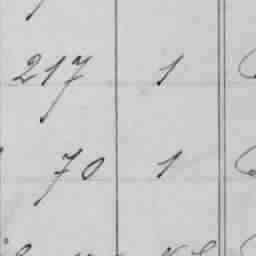 217 1
70 1